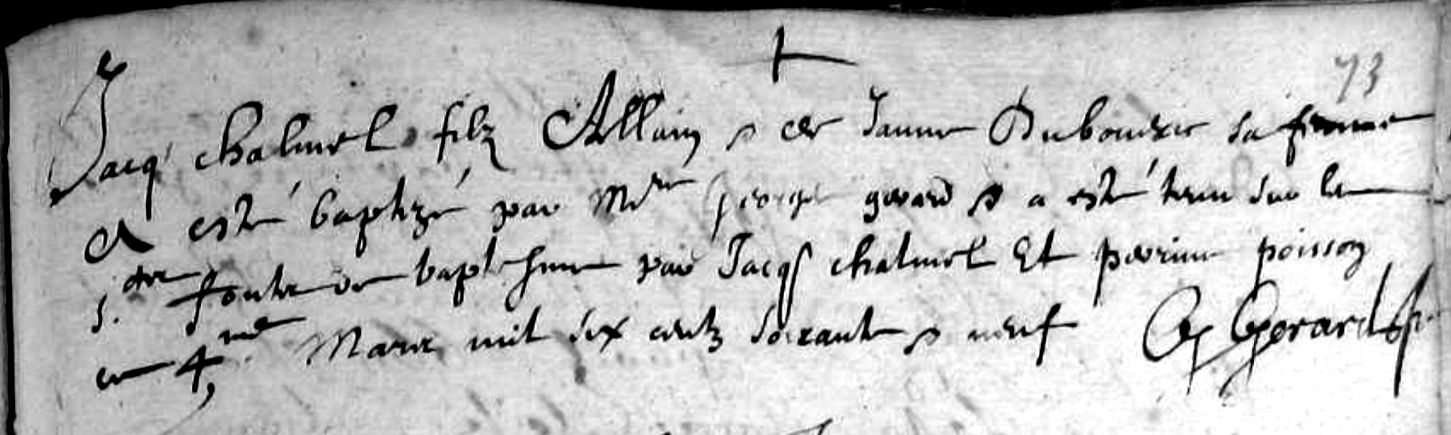 73
Jacq chalmel filz Allain & de Janne Duboudic sa femme
a esté baptizé par Mre george gerard & a esté tenu sur le
fonte de baptesme par Jacq chalmel Et perrine poisson
ce 4me Mars mil six centz soixante & neuf G Gerard